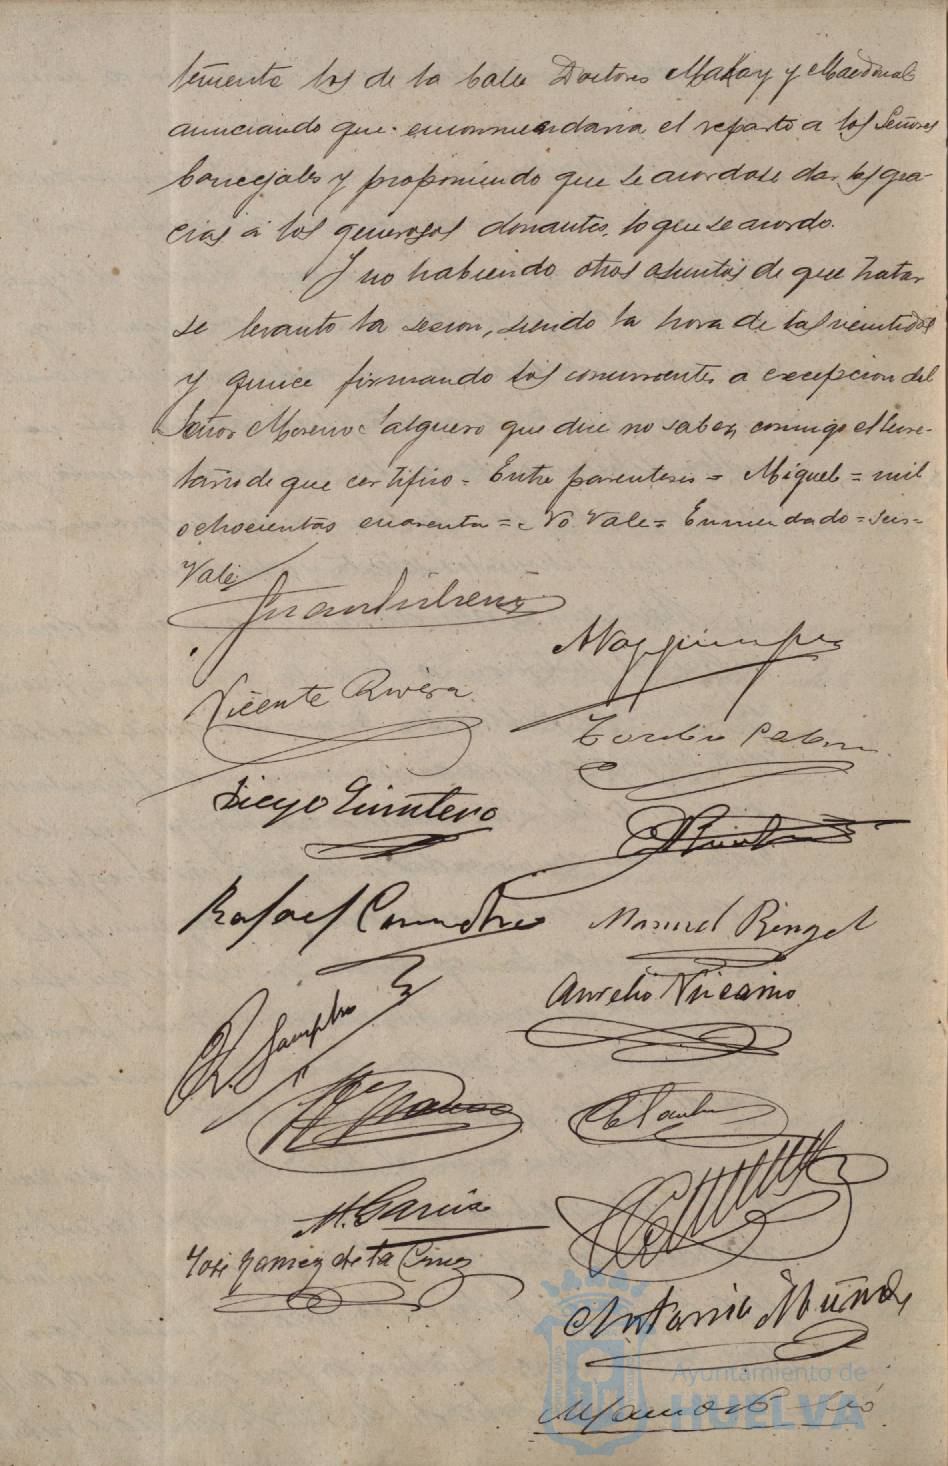 lemente los de la Calle Doctores Makay y Macdonal
anunciando que encomendaria el reparto a los Señores
Concejales y proponiendo que se acordase dar las gra-
cias a los generosos donantes, lo que se acordo.
Y no habiendo otros asuntos de que tratar
se levanto la sesion, siendo la hora de las veintidos
y quince firmando los concurrentes a excepcion del
Señor Moreno Salguero que dice no saber, conmigo el Secre-
tario de que certifico = Entre parentesis = Miguel = mil
ochocientas cuarenta = No Vale = Enmendado = seis=
Vale
Vicente Rivera
Diego Quintero
Rafael
Manuel Rengel
Aurelio Vizcaino
R. Sampedro
M. García
José Gamez de la Cruz
Antonio Muñoz
Ayuntamiento de
HUELVA